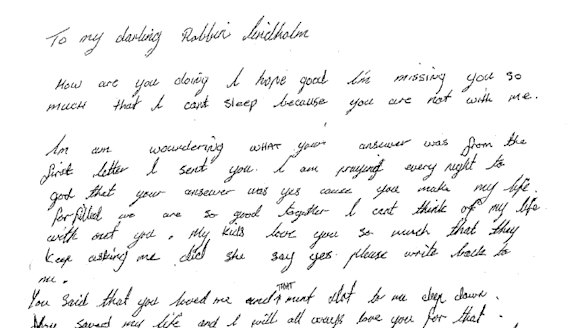 To my darling Robbin Lindholm
How are you doing I hope good Im missing you so
much that I cant sleep because you are not with me.
Im am woundering WHAT your answer was from the
first letter I sent you. I am praying every night to
god that your ansewer was yes cause you make my life.
forfilled we are so good together I cant think of my life
with out you. My kids love you so much that they
keep asking me did she say yes. please write back to
me.
You said that you loved me and THAT ment alot to me deep down.
You saved my life and I will all ways love you for that.